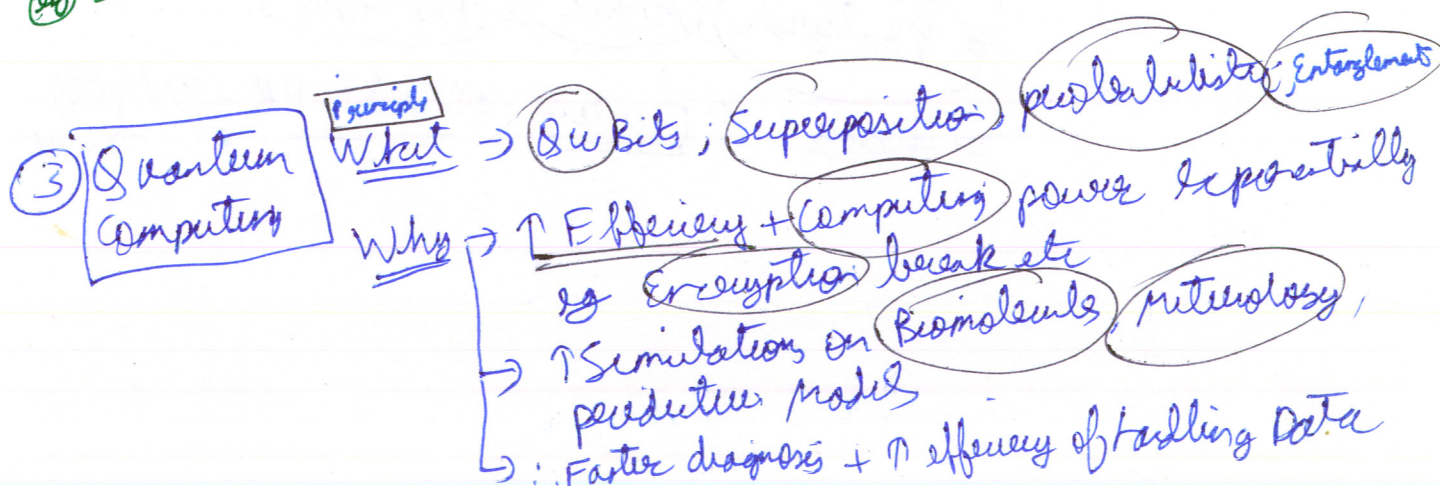 Principle
③ Quantum computing
What → QuBits ; Superposition, probabilistic, Entanglement
Why → ↑ Efficiency + Computing power exponentially
eg Encryption break etc
→ ↑ Simulations on Biomolecule, Meterology,
predictive Models
→ ∴ Faster diagnosis + ↑ efficiency of handling Data